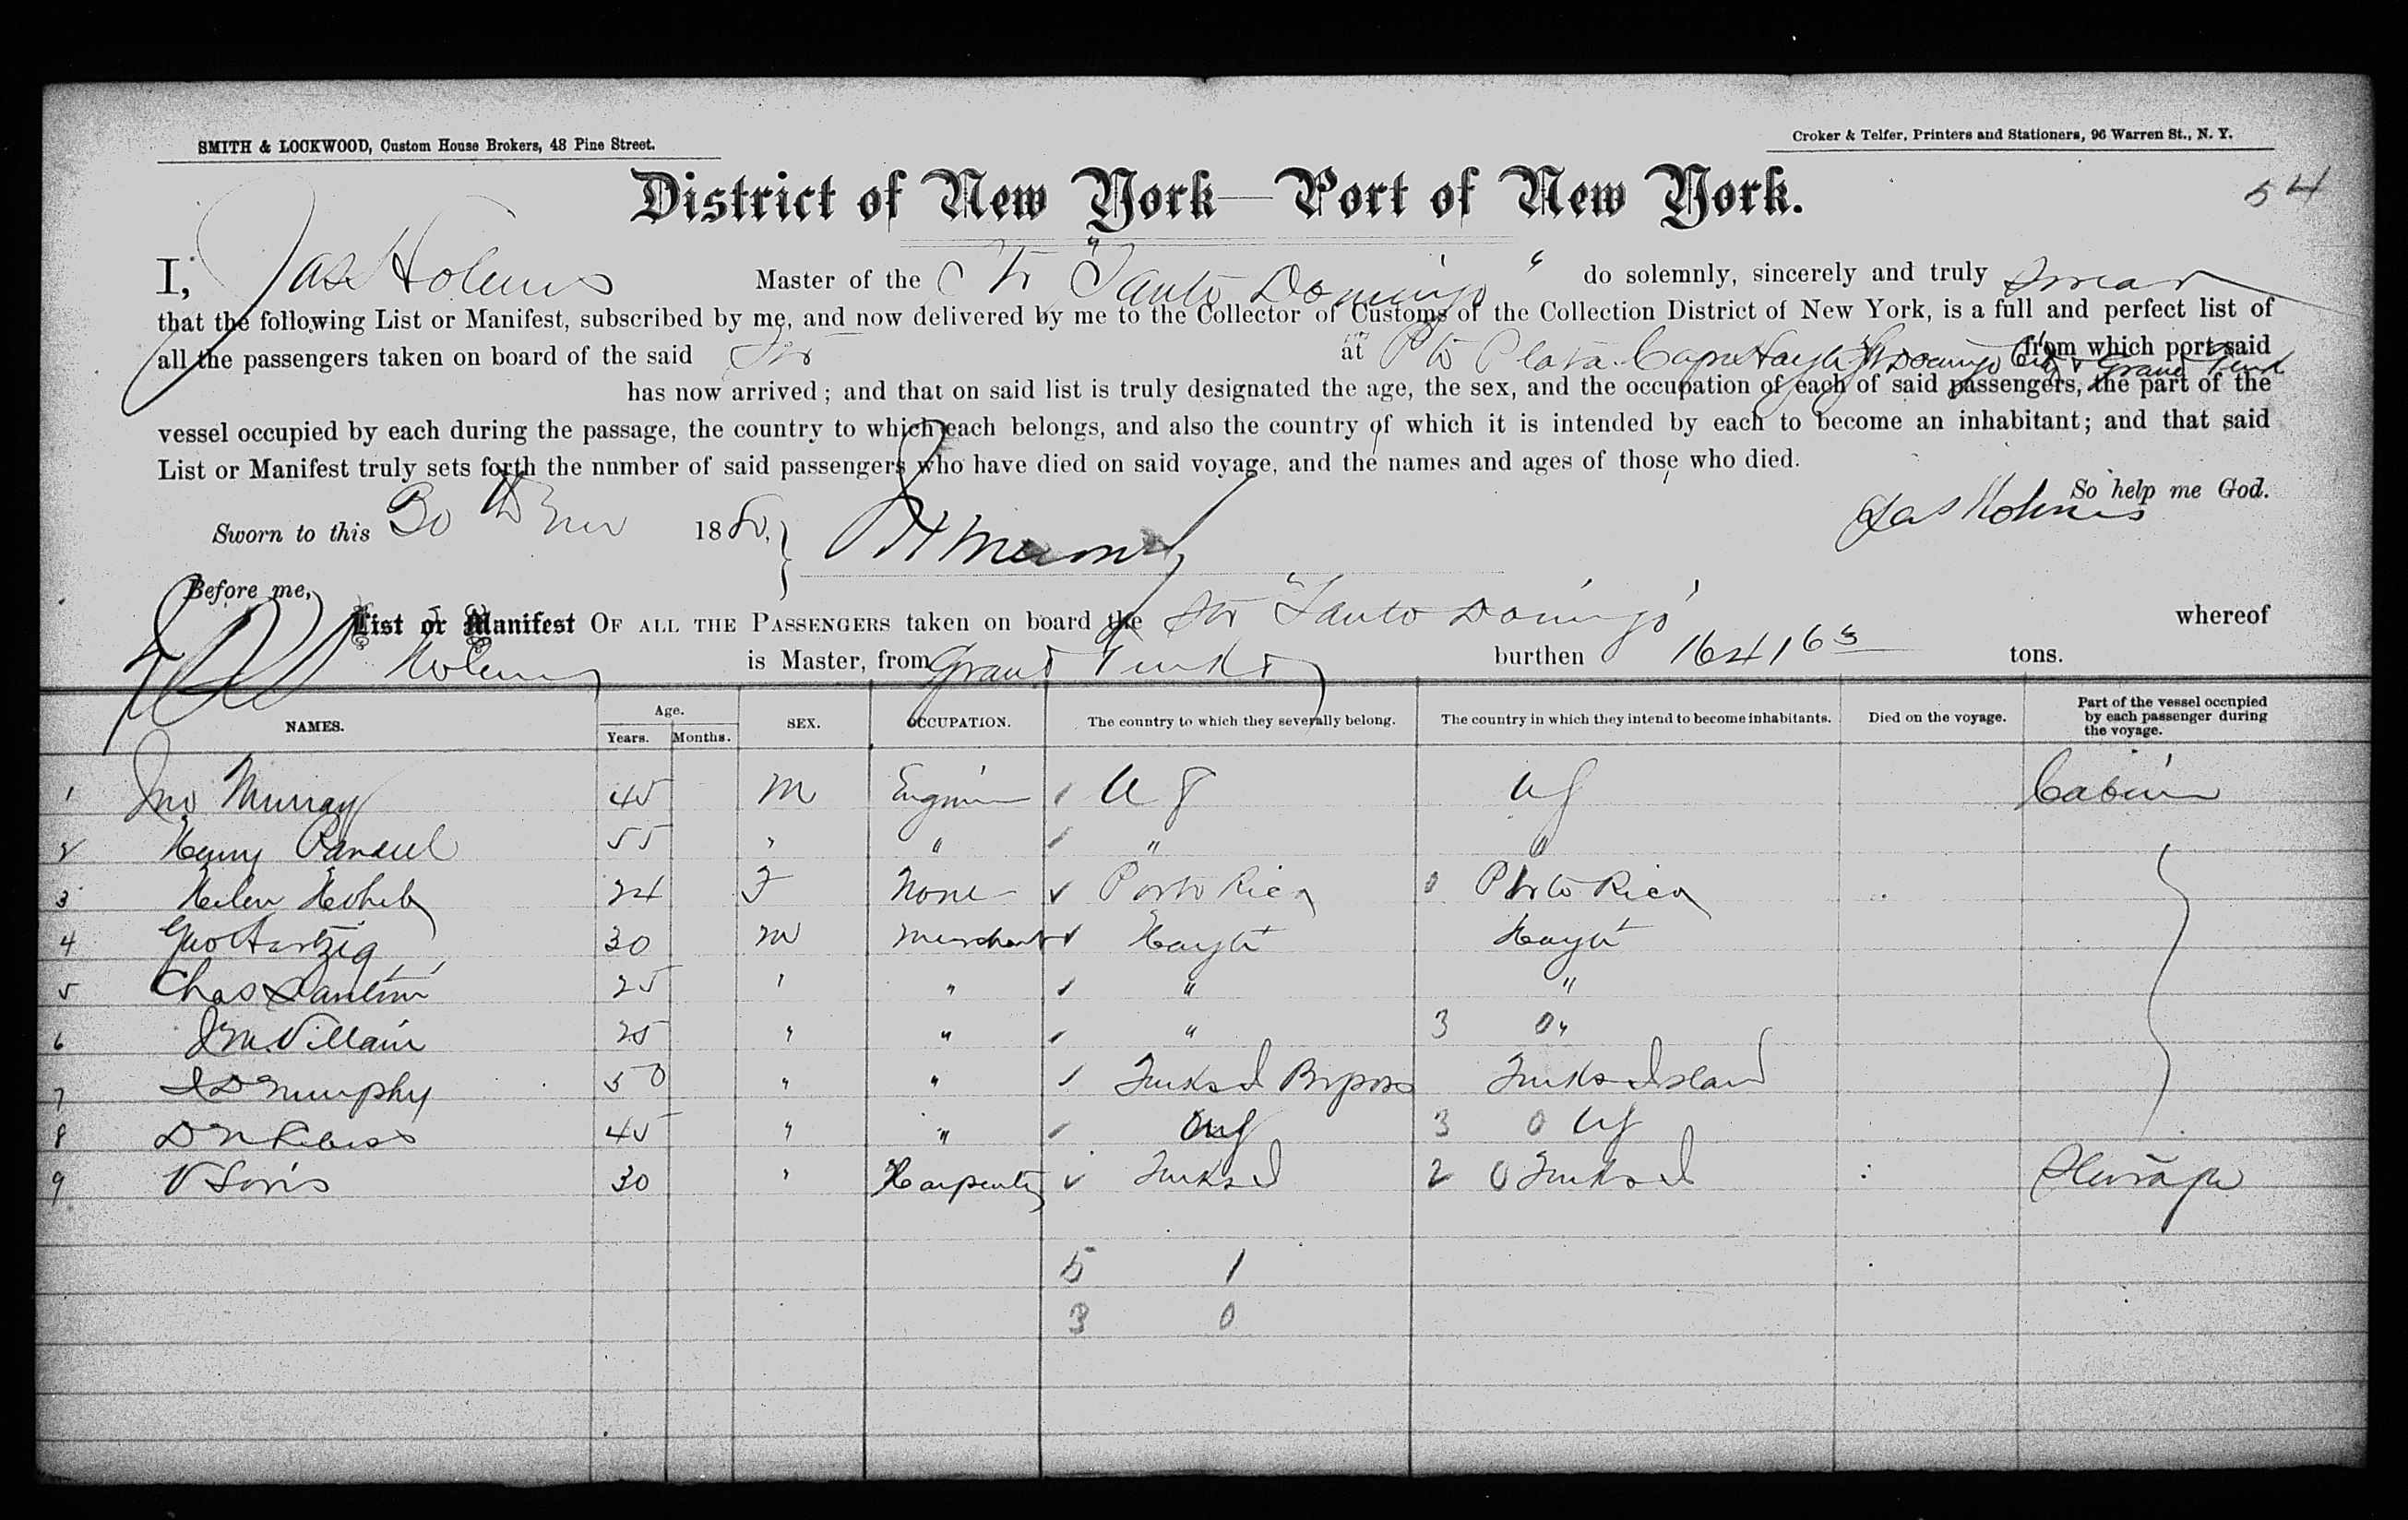 SMITH & LOCKWOOD, Custom House Brokers, 48 Pine Street.
Croker & Telfer, Printers and Stationers, 96 Warren St., N. Y.
District of New York—Port of New York.
54
I, Jas Holmes Master of the Str "Santo Domingo" do solemnly, sincerely and truly swear
that the following List or Manifest, subscribed by me, and now delivered by me to the Collector of Customs of the Collection District of New York, is a full and perfect list of
all the passengers taken on board of the said Str at Pto Plata Cape Hayti St Domingo City & Grand Turk from which port said
has now arrived; and that on said list is truly designated the age, the sex, and the occupation of each of said passengers, the part of the
vessel occupied by each during the passage, the country to which each belongs, and also the country of which it is intended by each to become an inhabitant; and that said
List or Manifest truly sets forth the number of said passengers who have died on said voyage, and the names and ages of those who died.
So help me God.
Sworn to this 30th 1880, Jas Holmes
Before me,
List or Manifest OF ALL THE PASSENGERS taken on board the Str "Santo Domingo" whereof
Holmes is Master, from Grand Turk burthen 1641 63 tons.
NAMES. Age. Years. Months. SEX. OCCUPATION. The country to which they severally belong. The country in which they intend to become inhabitants. Died on the voyage. Part of the vessel occupied by each passenger during the voyage.
1 Jno Murray 45 M Engineer US US Cabin
2 Henry 55 " " " "
3 Helen 24 F None Porto Rico 0 Porto Rico
4 Geo Hartzig 30 M Merchant Hayti Hayti
5 Chas Santini 25 " " " "
6 J M Villain 25 " " " 3 0 "
7 J D Murphy 50 " " Turks I Turks Island
8 D N 45 " " US 3 0 US
9 V Soris 30 " Carpenter Turks I 2 0 Turks I Steerage
5 1
3 0